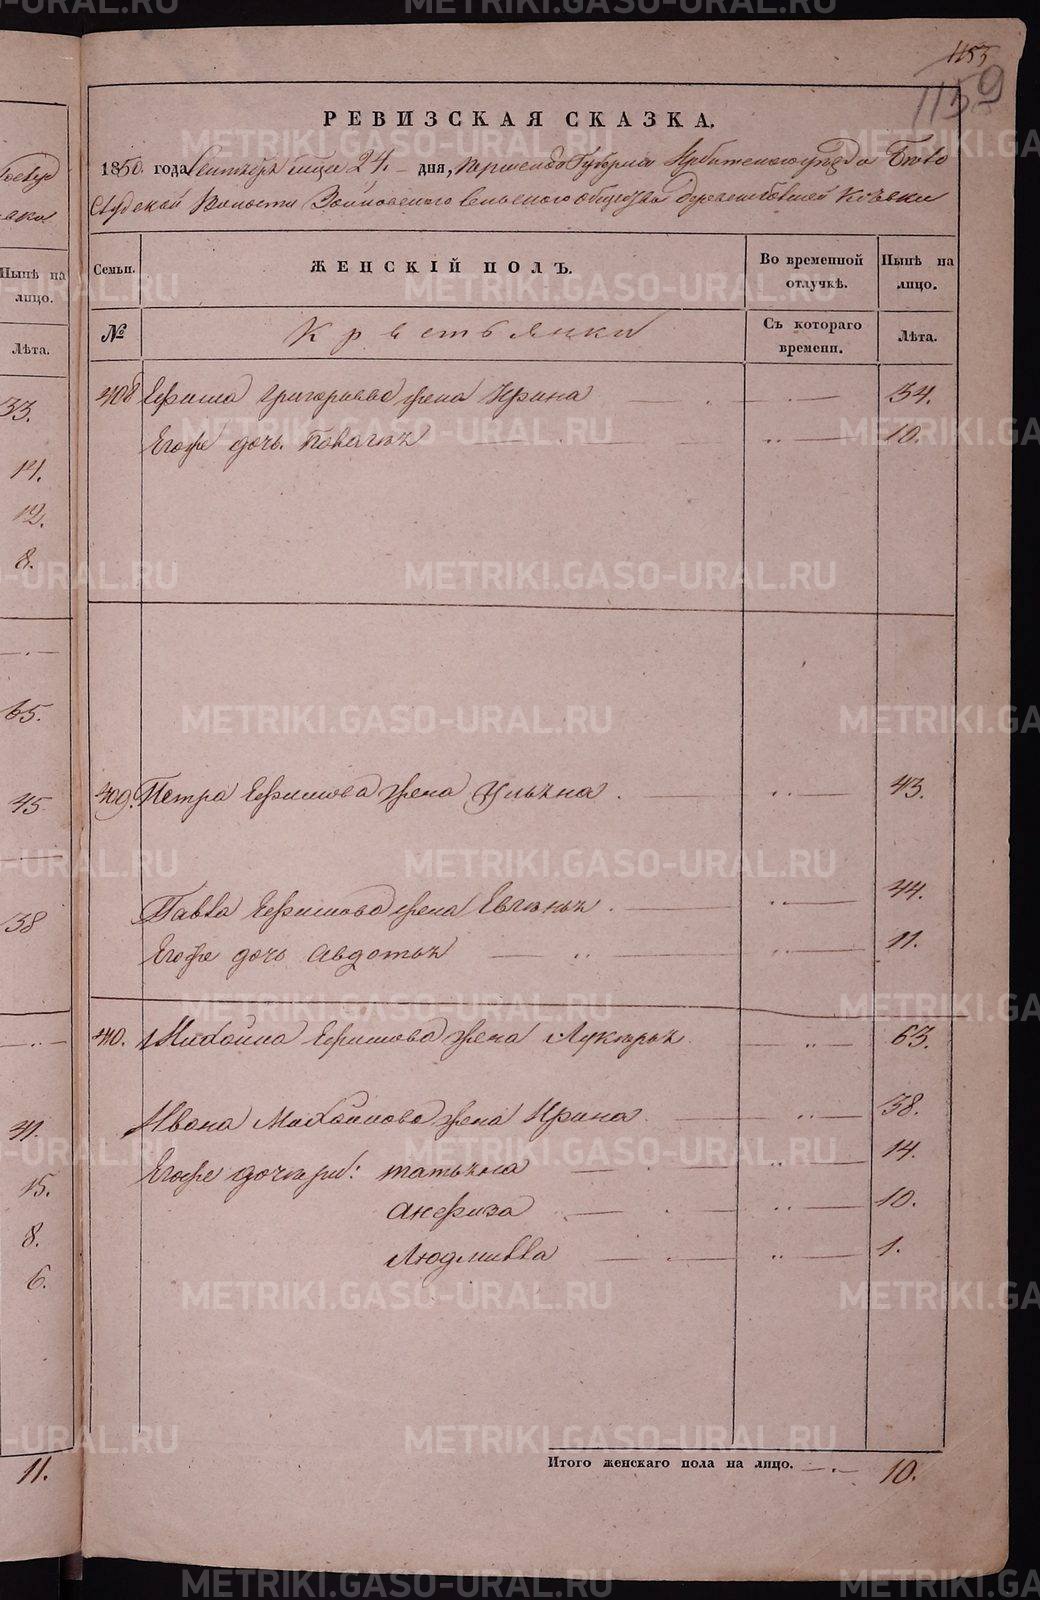 1153
1159
РЕВИЗСКАЯ СКАЗКА.
1850. года Сентября мца 24. дня, Пермской Губернии Ирбитского уезда Бело
Слудской Волости сельского общества деревни Кочевки
Семьи. ЖЕНСКІЙ ПОЛЪ. Во временной отлучкѣ. Нынѣ на лицо.
№ Крестьянки Съ котораго времени. Лѣта.
408 Ефима Григорьева жена Ирина 34.
Егоже дочь Пелагея 10.
409. Петра Ефимова жена Ульяна 43.
Павла Ефимова жена Евгенья 44.
Егоже дочь Авдотья 11.
410. Михайла Ефимова жена Лукерья 63.
Ивана Михайлова жена Ирина 38.
Егоже дочери: Татьяна 14.
Анфиза 10.
Людмилла 1.
Итого женскаго пола на лицо. 10.
Нынѣ на лицо.
Лѣта.
33.
14.
12.
8.
65.
45
38
41.
15.
8.
6.
11.
METRIKI.GASO-URAL.RU